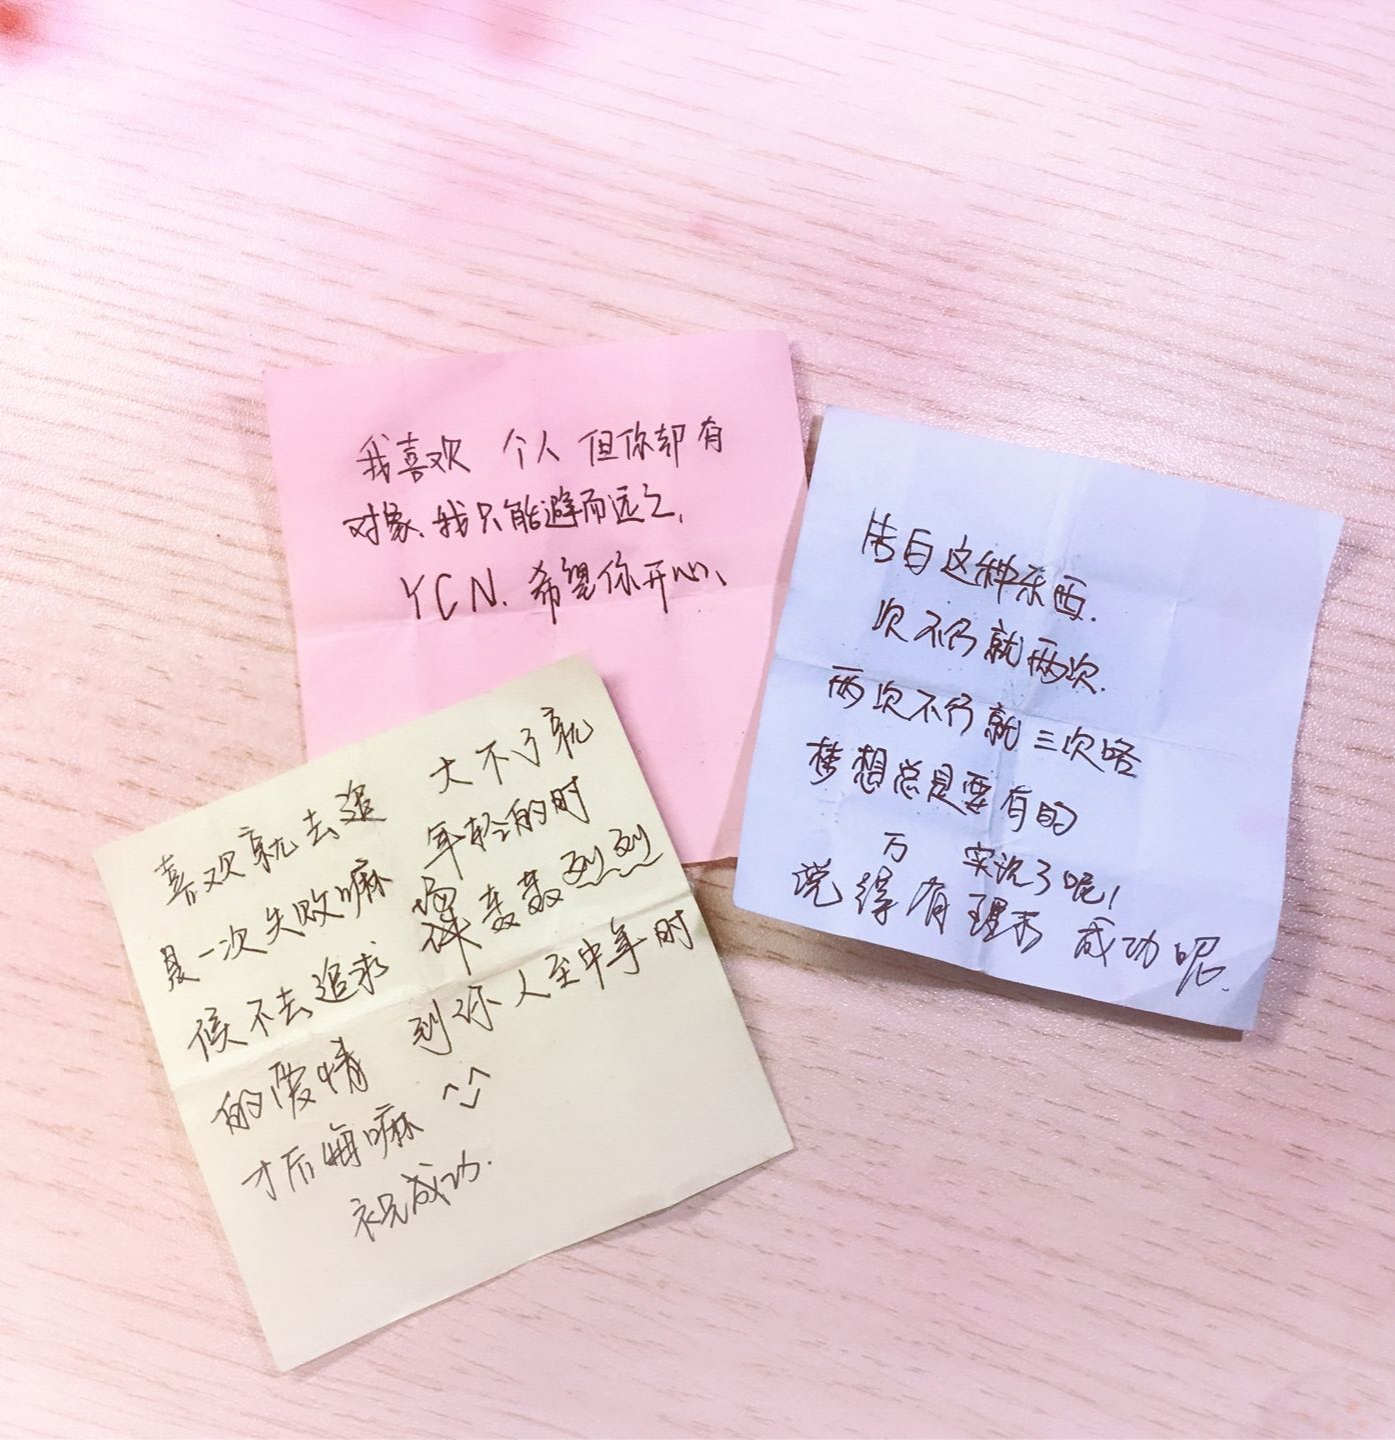 我喜欢 个人 但你却有
对象、我只能避而远之、
YCN、希望你开心、
告白这种东西.
次不行就两次.
两次不行就三次咯
梦想总是要有的
万 实现了呢!
说得有理未 成功呢.
喜欢就去追 大不了就
是一次失败嘛 年轻的时
候不去追求 一场轰轰烈烈
的爱情 到你人至中年时
才后悔嘛 ^_^
祝成功.